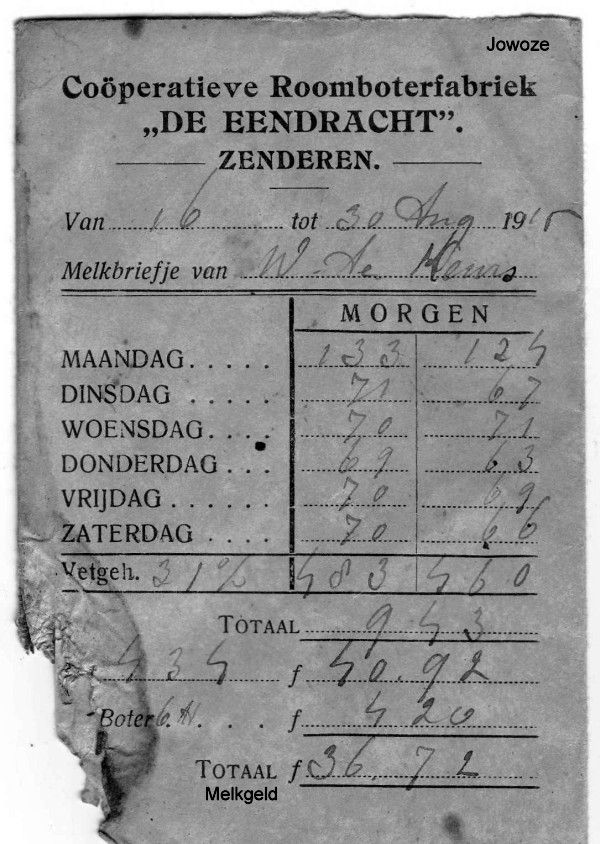 Jowoze
Coöperatieve Roomboterfabriek
„DE EENDRACHT".
ZENDEREN.
Van 16 tot 30 Aug 1915
Melkbriefje van W.
MORGEN
MAANDAG ..... 133 124
DINSDAG ..... 71 67
WOENSDAG .... 70 71
DONDERDAG ... 69 63
VRIJDAG ...... 70 69
ZATERDAG .... 70 66
Vetgeh. 31% 483 460
TOTAAL 943
434 f 40.92
Boter 6 . . . f 420
TOTAAL f 36.72
Melkgeld